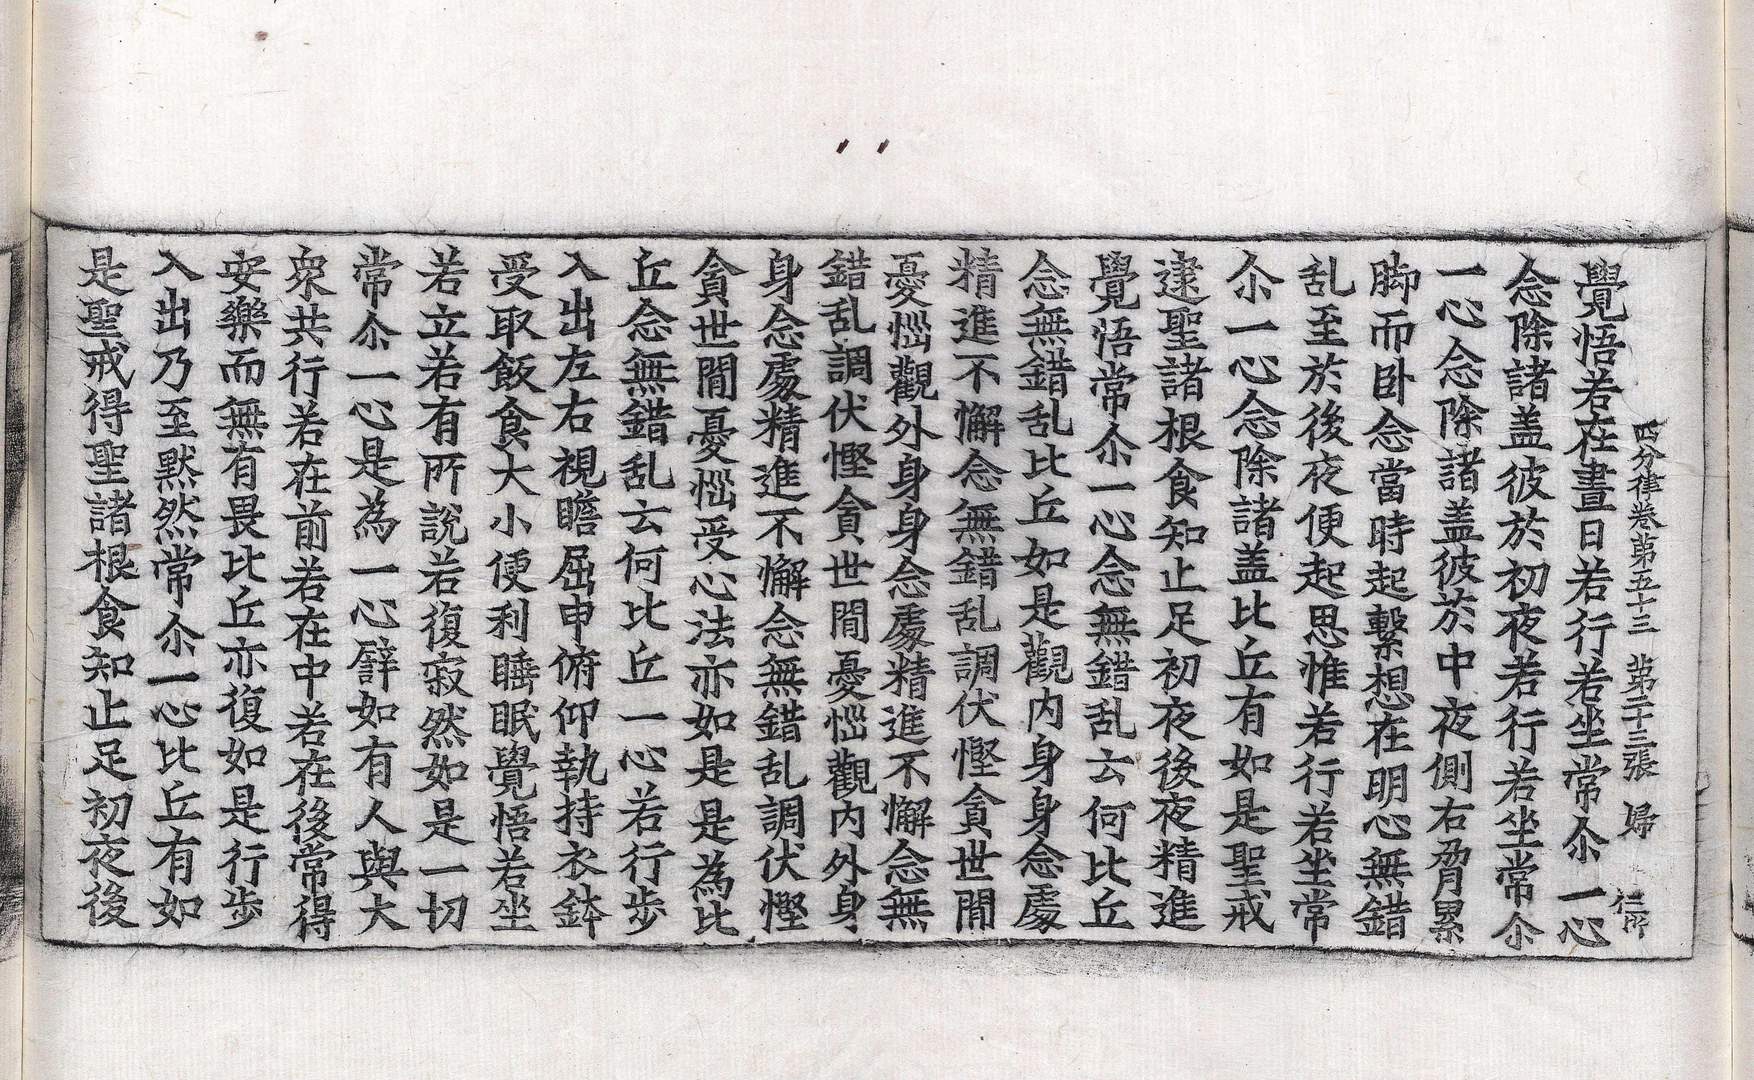 四分律卷第五十三 第二十三張 婦
覺悟若在晝日若行若坐常尒一心
念除諸盖彼於初夜若行若坐常尒
一心念除諸盖彼於中夜側右脅累
脚而卧念當時起繫想在明心無錯
乱至於後夜便起思惟若行若坐常
尒一心念除諸盖比丘有如是聖戒
逮聖諸根食知止足初夜後夜精進
覺悟常尒一心念無錯乱云何比丘
念無錯乱比丘如是觀內身身念處
精進不懈念無錯乱調伏慳貪世間
憂惱觀外身身念處精進不懈念無
錯乱調伏慳貪世間憂惱觀內外身
身念處精進不懈念無錯乱調伏慳
貪世間憂惱受心法亦如是是為比
丘念無錯乱云何比丘一心若行步
入出左右視瞻屈申俯仰執持衣鉢
受取飯食大小便利睡眠覺悟若坐
若立若有所說若復寂然如是一切
常尒一心是為一心譬如有人與大
衆共行若在前若在中若在後常得
安樂而無有畏比丘亦復如是行步
入出乃至默然常尒一心比丘有如
是聖戒得聖諸根食知止足初夜後